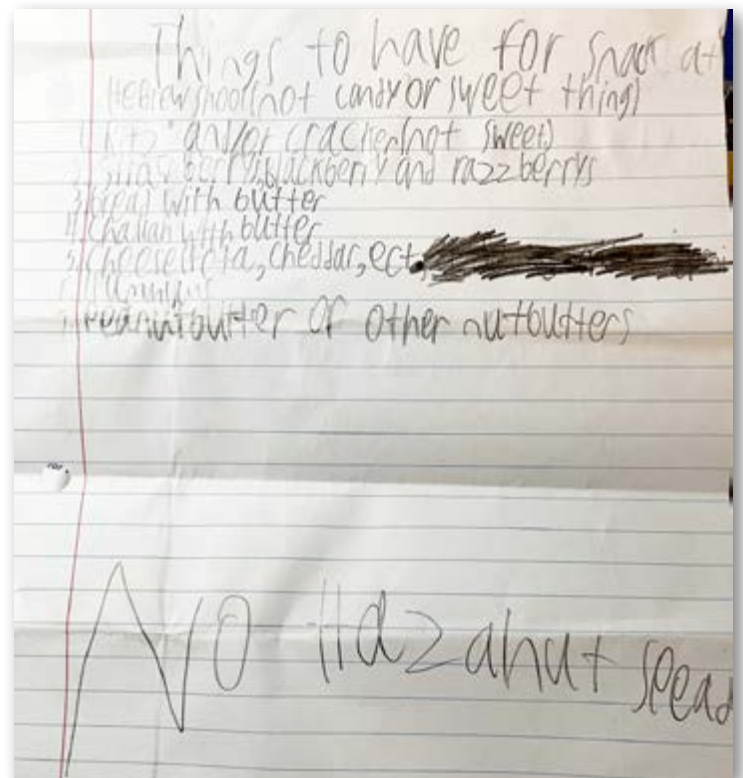 Things to have for Snack at
HEBrew shool(not candy or sweet thing)
1. Ritz and/or cracker(not sweet)
berrys,blackberry and razzberrys
3. bread with butter
4. challah with butter
5. cheese feta, cheddar, ect.
7. Peanutbutter or other nutbutters
NO Hazanut spead